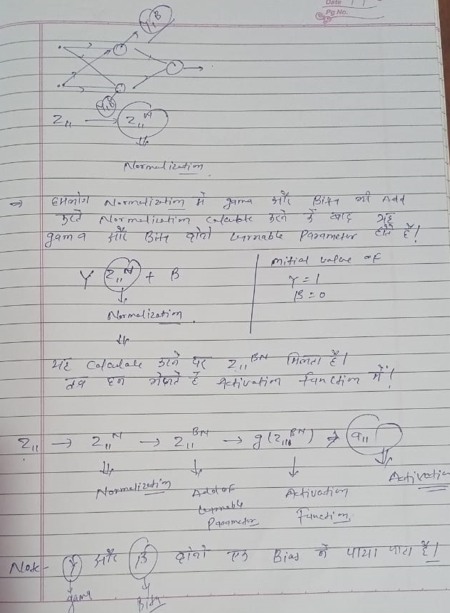 Date
Pg No.
γ, B
γ, B
Z₁₁ → Z₁₁ᴺ
Normalization
⇒ हमलोग Normalization में gama और Bita को Add
करते Normalization Calculate करने के बाद यह
gama और Bita दोनों Learnable Parameter होते हैं!
γ Z₁₁ᴺ + B
Normalization
Initial value of
γ = 1
B = 0
यह Calculate करने पर Z₁₁ᴮᴺ मिलता है!
तब हम भेजते हैं Activation function में!
Z₁₁ → Z₁₁ᴺ → Z₁₁ᴮᴺ → g(Z₁₁ᴮᴺ) ⇒ a₁₁
Normalization
Add of Learnable Parameter
Activation Function
Activation
Note - γ और B दोनों एक Bias में पाया जाता है!
gama
Bita